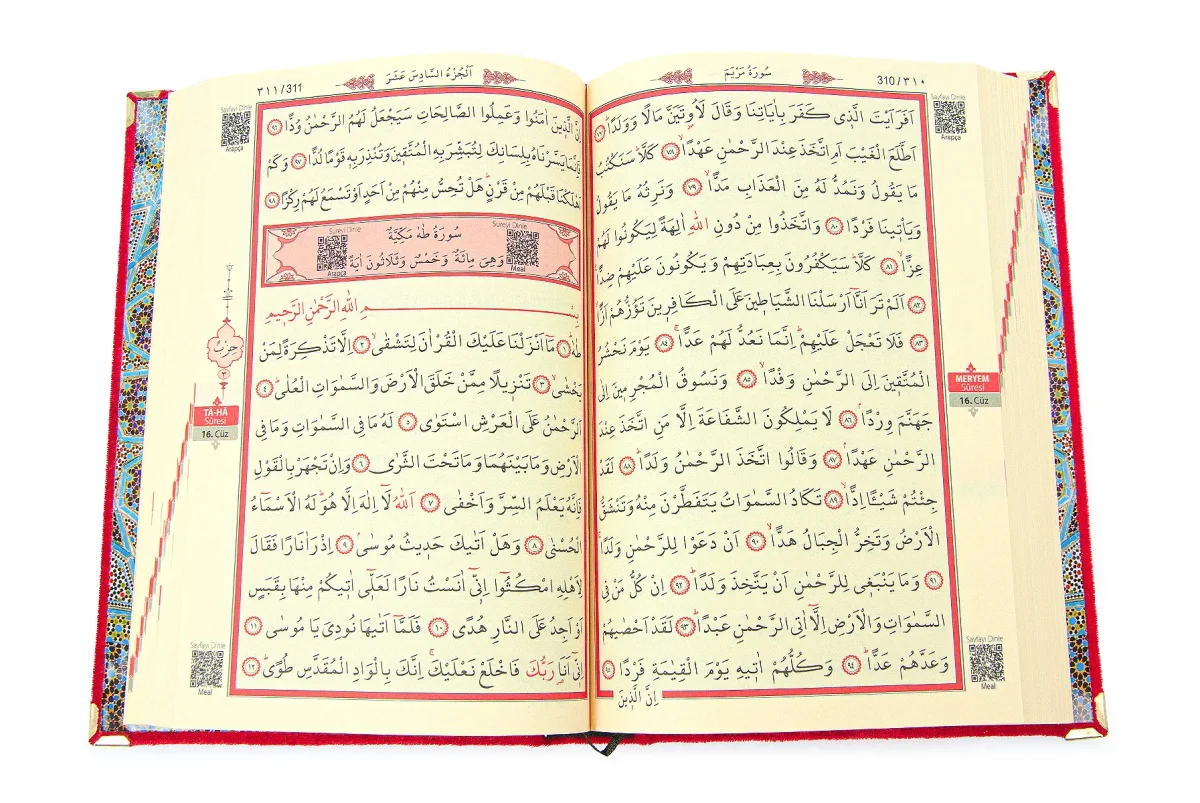 ٣١٠/310
سُورَةُ مَرْيَمَ
اَفَرَاَيْتَ الَّذ۪ي كَفَرَ بِاٰيَاتِنَا وَقَالَ لَاُو۫تَيَنَّ مَالًا وَوَلَدًاۜ ﴿٧٧﴾
اَطَّلَعَ الْغَيْبَ اَمِ اتَّخَذَ عِنْدَ الرَّحْمٰنِ عَهْدًاۙ ﴿٧٨﴾ كَلَّاۜ سَنَكْتُبُ
مَا يَقُولُ وَنَمُدُّ لَهُ مِنَ الْعَذَابِ مَدًّاۙ ﴿٧٩﴾ وَنَرِثُهُ مَا يَقُولُ
وَيَأْت۪ينَا فَرْدًا ﴿٨٠﴾ وَاتَّخَذُوا مِنْ دُونِ اللّٰهِ اٰلِهَةً لِيَكُونُوا لَهُمْ
عِزًّاۙ ﴿٨١﴾ كَلَّاۜ سَيَكْفُرُونَ بِعِبَادَتِهِمْ وَيَكُونُونَ عَلَيْهِمْ ضِدًّا۟
﴿٨٢﴾ اَلَمْ تَرَ اَنَّٓا اَرْسَلْنَا الشَّيَاط۪ينَ عَلَى الْكَافِر۪ينَ تَؤُزُّهُمْ اَزًّاۙ
﴿٨٣﴾ فَلَا تَعْجَلْ عَلَيْهِمْۜ اِنَّمَا نَعُدُّ لَهُمْ عَدًّاۚ ﴿٨٤﴾ يَوْمَ نَحْشُرُ
الْمُتَّق۪ينَ اِلَى الرَّحْمٰنِ وَفْدًاۙ ﴿٨٥﴾ وَنَسُوقُ الْمُجْرِم۪ينَ اِلٰى
جَهَنَّمَ وِرْدًاۢ ﴿٨٦﴾ لَا يَمْلِكُونَ الشَّفَاعَةَ اِلَّا مَنِ اتَّخَذَ عِنْدَ
الرَّحْمٰنِ عَهْدًاۢ ﴿٨٧﴾ وَقَالُوا اتَّخَذَ الرَّحْمٰنُ وَلَدًاۜ ﴿٨٨﴾ لَقَدْ
جِئْتُمْ شَيْـًٔا اِدًّاۙ ﴿٨٩﴾ تَكَادُ السَّمٰوَاتُ يَتَفَطَّرْنَ مِنْهُ وَتَنْشَقُّ
الْاَرْضُ وَتَخِرُّ الْجِبَالُ هَدًّاۙ ﴿٩٠﴾ اَنْ دَعَوْا لِلرَّحْمٰنِ وَلَدًاۚ
﴿٩١﴾ وَمَا يَنْبَغ۪ي لِلرَّحْمٰنِ اَنْ يَتَّخِذَ وَلَدًاۜ ﴿٩٢﴾ اِنْ كُلُّ مَنْ فِي
السَّمٰوَاتِ وَالْاَرْضِ اِلَّٓا اٰتِي الرَّحْمٰنِ عَبْدًاۜ ﴿٩٣﴾ لَقَدْ اَحْصٰيهُمْ
وَعَدَّهُمْ عَدًّاۜ ﴿٩٤﴾ وَكُلُّهُمْ اٰت۪يهِ يَوْمَ الْقِيٰمَةِ فَرْدًا ﴿٩٥﴾
اِنَّ الَّذ۪ينَ
Sayfayı Dinle
Arapça
MERYEM
Sûresi
16. Cüz
Sayfayı Dinle
Meal
٣١١/311
اَلْجُزْءُ السَّادِسَ عَشَرَ
اِنَّ الَّذ۪ينَ اٰمَنُوا وَعَمِلُوا الصَّالِحَاتِ سَيَجْعَلُ لَهُمُ الرَّحْمٰنُ وُدًّا ﴿٩٦﴾
فَاِنَّمَا يَسَّرْنَاهُ بِلِسَانِكَ لِتُبَشِّرَ بِهِ الْمُتَّق۪ينَ وَتُنْذِرَ بِه۪ قَوْمًا لُدًّا ﴿٩٧﴾ وَكَمْ
اَهْلَكْنَا قَبْلَهُمْ مِنْ قَرْنٍۜ هَلْ تُحِسُّ مِنْهُمْ مِنْ اَحَدٍ اَوْ تَسْمَعُ لَهُمْ رِكْزًا ﴿٩٨﴾
Sureyi Dinle
Arapça
Sureyi Dinle
Meal
سُورَةُ طٰهٰ مَكِّيَّةٌ
وَهِيَ مِائَةٌ وَخَمْسٌ وَثَلَاثُونَ اٰيَةً
بِسْمِ اللّٰهِ الرَّحْمٰنِ الرَّح۪يمِ
طٰهٰ ﴿١﴾ مَٓا اَنْزَلْنَا عَلَيْكَ الْقُرْاٰنَ لِتَشْقٰىۙ ﴿٢﴾ اِلَّا تَذْكِرَةً لِمَنْ
يَخْشٰىۙ ﴿٣﴾ تَنْز۪يلًا مِمَّنْ خَلَقَ الْاَرْضَ وَالسَّمٰوَاتِ الْعُلٰىۜ ﴿٤﴾
اَلرَّحْمٰنُ عَلَى الْعَرْشِ اسْتَوٰى ﴿٥﴾ لَهُ مَا فِي السَّمٰوَاتِ وَمَا فِي
الْاَرْضِ وَمَا بَيْنَهُمَا وَمَا تَحْتَ الثَّرٰى ﴿٦﴾ وَاِنْ تَجْهَرْ بِالْقَوْلِ
فَاِنَّهُ يَعْلَمُ السِّرَّ وَاَخْفٰى ﴿٧﴾ اَللّٰهُ لَٓا اِلٰهَ اِلَّا هُوَۜ لَهُ الْاَسْمَٓاءُ
الْحُسْنٰى ﴿٨﴾ وَهَلْ اَتٰيكَ حَد۪يثُ مُوسٰىۢ ﴿٩﴾ اِذْ رَاٰ نَارًا فَقَالَ
لِاَهْلِهِ امْكُثُٓوا اِنّ۪ٓي اٰنَسْتُ نَارًا لَعَلّ۪ٓي اٰت۪يكُمْ مِنْهَا بِقَبَسٍ
اَوْ اَجِدُ عَلَى النَّارِ هُدًى ﴿١٠﴾ فَلَمَّٓا اَتٰيهَا نُودِيَ يَا مُوسٰى ﴿١١﴾
اِنّ۪ٓي اَنَا۬ رَبُّكَ فَاخْلَعْ نَعْلَيْكَۚ اِنَّكَ بِالْوَادِ الْمُقَدَّسِ طُوًىۜ ﴿١٢﴾
Sayfayı Dinle
Arapça
حِزْبٌ
TÂ-HÂ
Sûresi
16. Cüz
Sayfayı Dinle
Meal